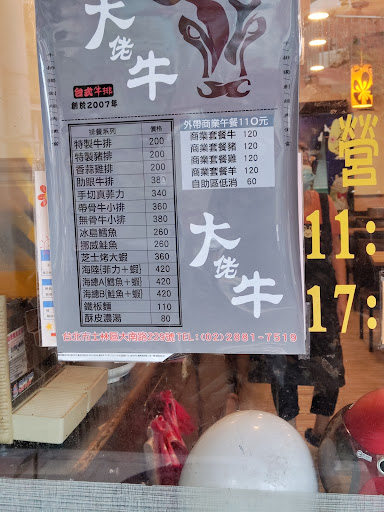 大佬牛
台式牛排
創於2007年
排餐系列 價格
特製牛排 200
特製豬排 200
香蒜雞排 200
肋眼牛排 380
手切真菲力 340
帶骨牛小排 360
無骨牛小排 380
冰島鱈魚 260
挪威鮭魚 260
芝士烤大蝦 360
海陸{菲力+蝦} 420
海總A{鱈魚+蝦} 420
海總B{鮭魚+蝦} 420
鐵板麵 110
酥皮濃湯 80
外帶商業午餐110元
商業套餐牛 120
商業套餐豬 120
商業套餐雞 120
商業套餐羊 120
自助區低消 60
大佬牛
台北市士林區大南路229號 TEL:(02)2881-7519
營
11:
17: